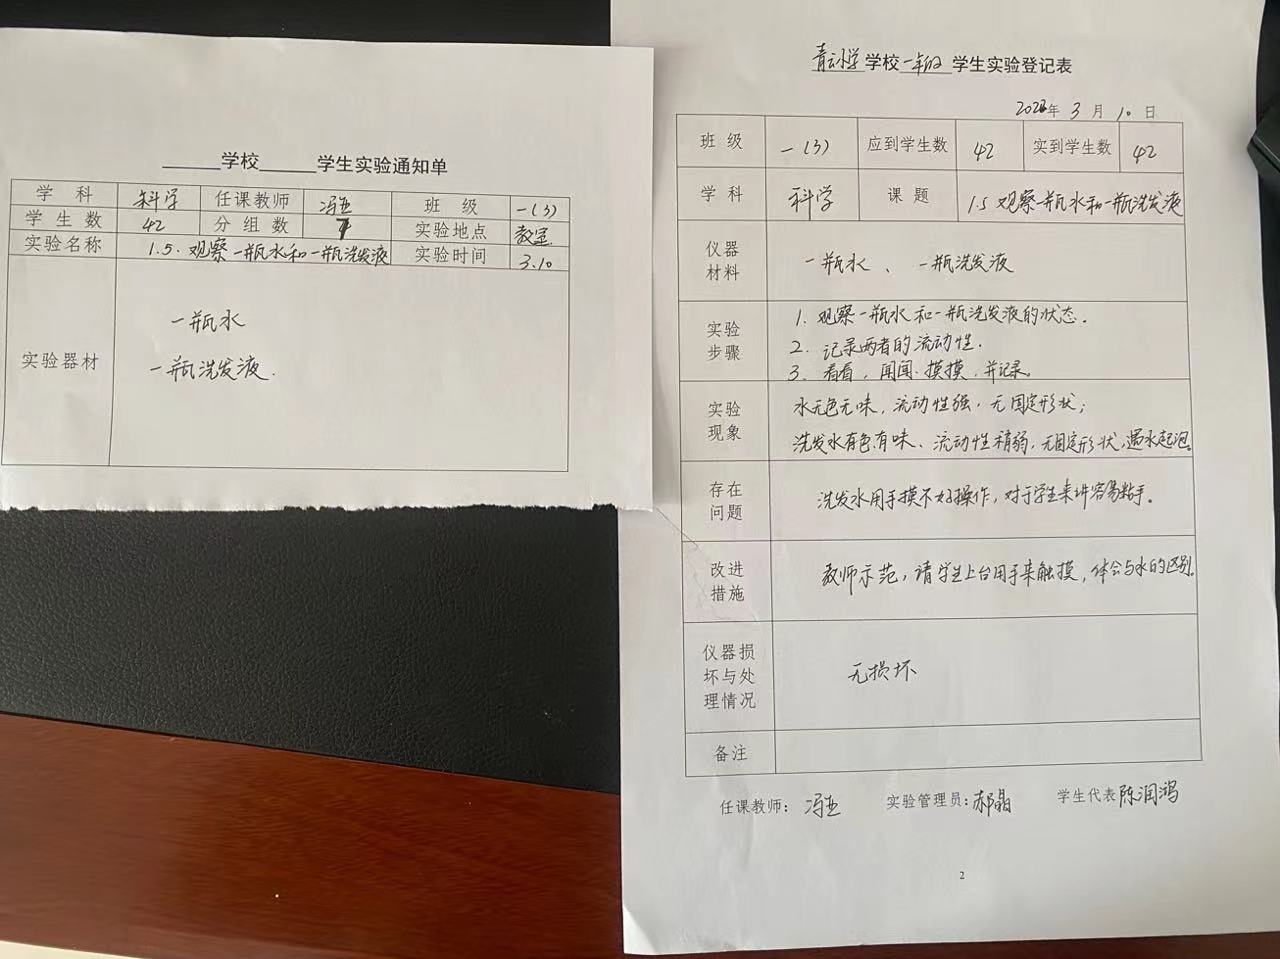 学校 学生实验通知单
学科 科学 任课教师 冯亚 班级 一(3)
学生数 42 分组数 7 实验地点 教室
实验名称 1.5.观察一瓶水和一瓶洗发液 实验时间 3.10
实验器材
一瓶水
一瓶洗发液.
学校 学生实验登记表
年 3 月 10 日
班级 一(3) 应到学生数 42 实到学生数 42
学科 科学 课题 1.5 观察一瓶水和一瓶洗发液
仪器材料 一瓶水、一瓶洗发液
实验步骤
1. 观察一瓶水和一瓶洗发液的状态.
2. 记录两者的流动性.
3. 看看,闻闻.摸摸.并记录.
实验现象
水无色无味,流动性强,无固定形状;
洗发水有色有味、流动性稍弱,无固定形状,遇水起泡。
存在问题 洗发水用手摸不好操作,对于学生来讲容易粘手。
改进措施 教师示范,请学生上台用手来触摸,体会与水的区别。
仪器损坏与处理情况 无损坏
备注
任课教师: 冯亚 实验管理员: 郝晶 学生代表 陈润鸿
2